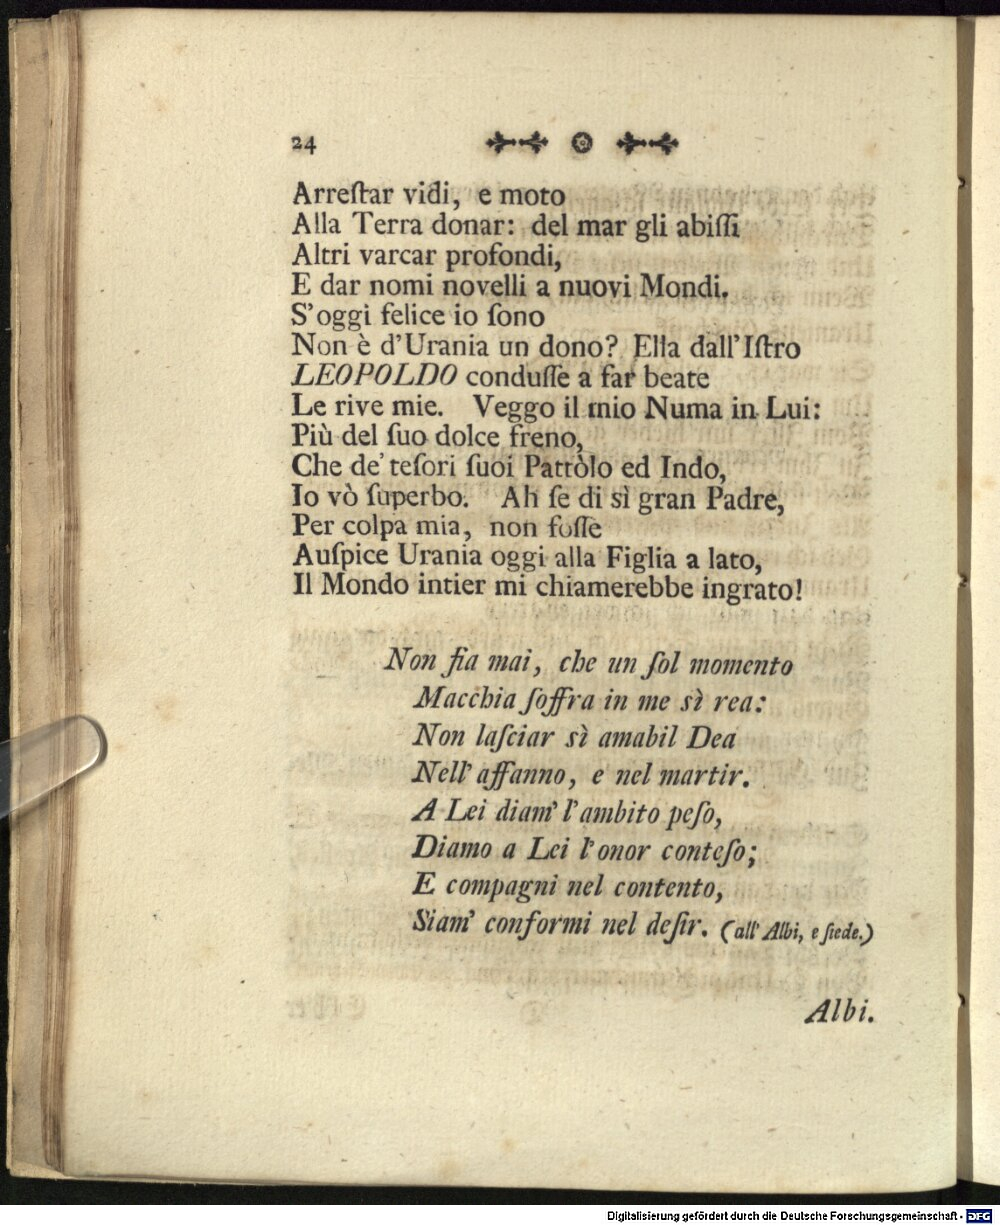 24
Arreſtar vidi, e moto
Alla Terra donar: del mar gli abiſſi
Altri varcar profondi,
E dar nomi novelli a nuovi Mondi.
S'oggi felice io ſono
Non è d'Urania un dono? Ella dall'Iſtro
LEOPOLDO conduſſe a far beate
Le rive mie. Veggo il mio Numa in Lui:
Più del ſuo dolce freno,
Che de' teſori ſuoi Pattòlo ed Indo,
Io vò ſuperbo. Ah ſe di sì gran Padre,
Per colpa mia, non foſſe
Auſpice Urania oggi alla Figlia a lato,
Il Mondo intier mi chiamerebbe ingrato!
Non fia mai, che un ſol momento
Macchia ſoffra in me sì rea:
Non laſciar sì amabil Dea
Nell' affanno, e nel martir.
A Lei diam' l'ambito peſo,
Diamo a Lei l'onor conteſo;
E compagni nel contento,
Siam' conformi nel deſir. (all' Albi, e ſiede.)
Albi.
Digitalisierung gefördert durch die Deutsche Forschungsgemeinschaft - DFG